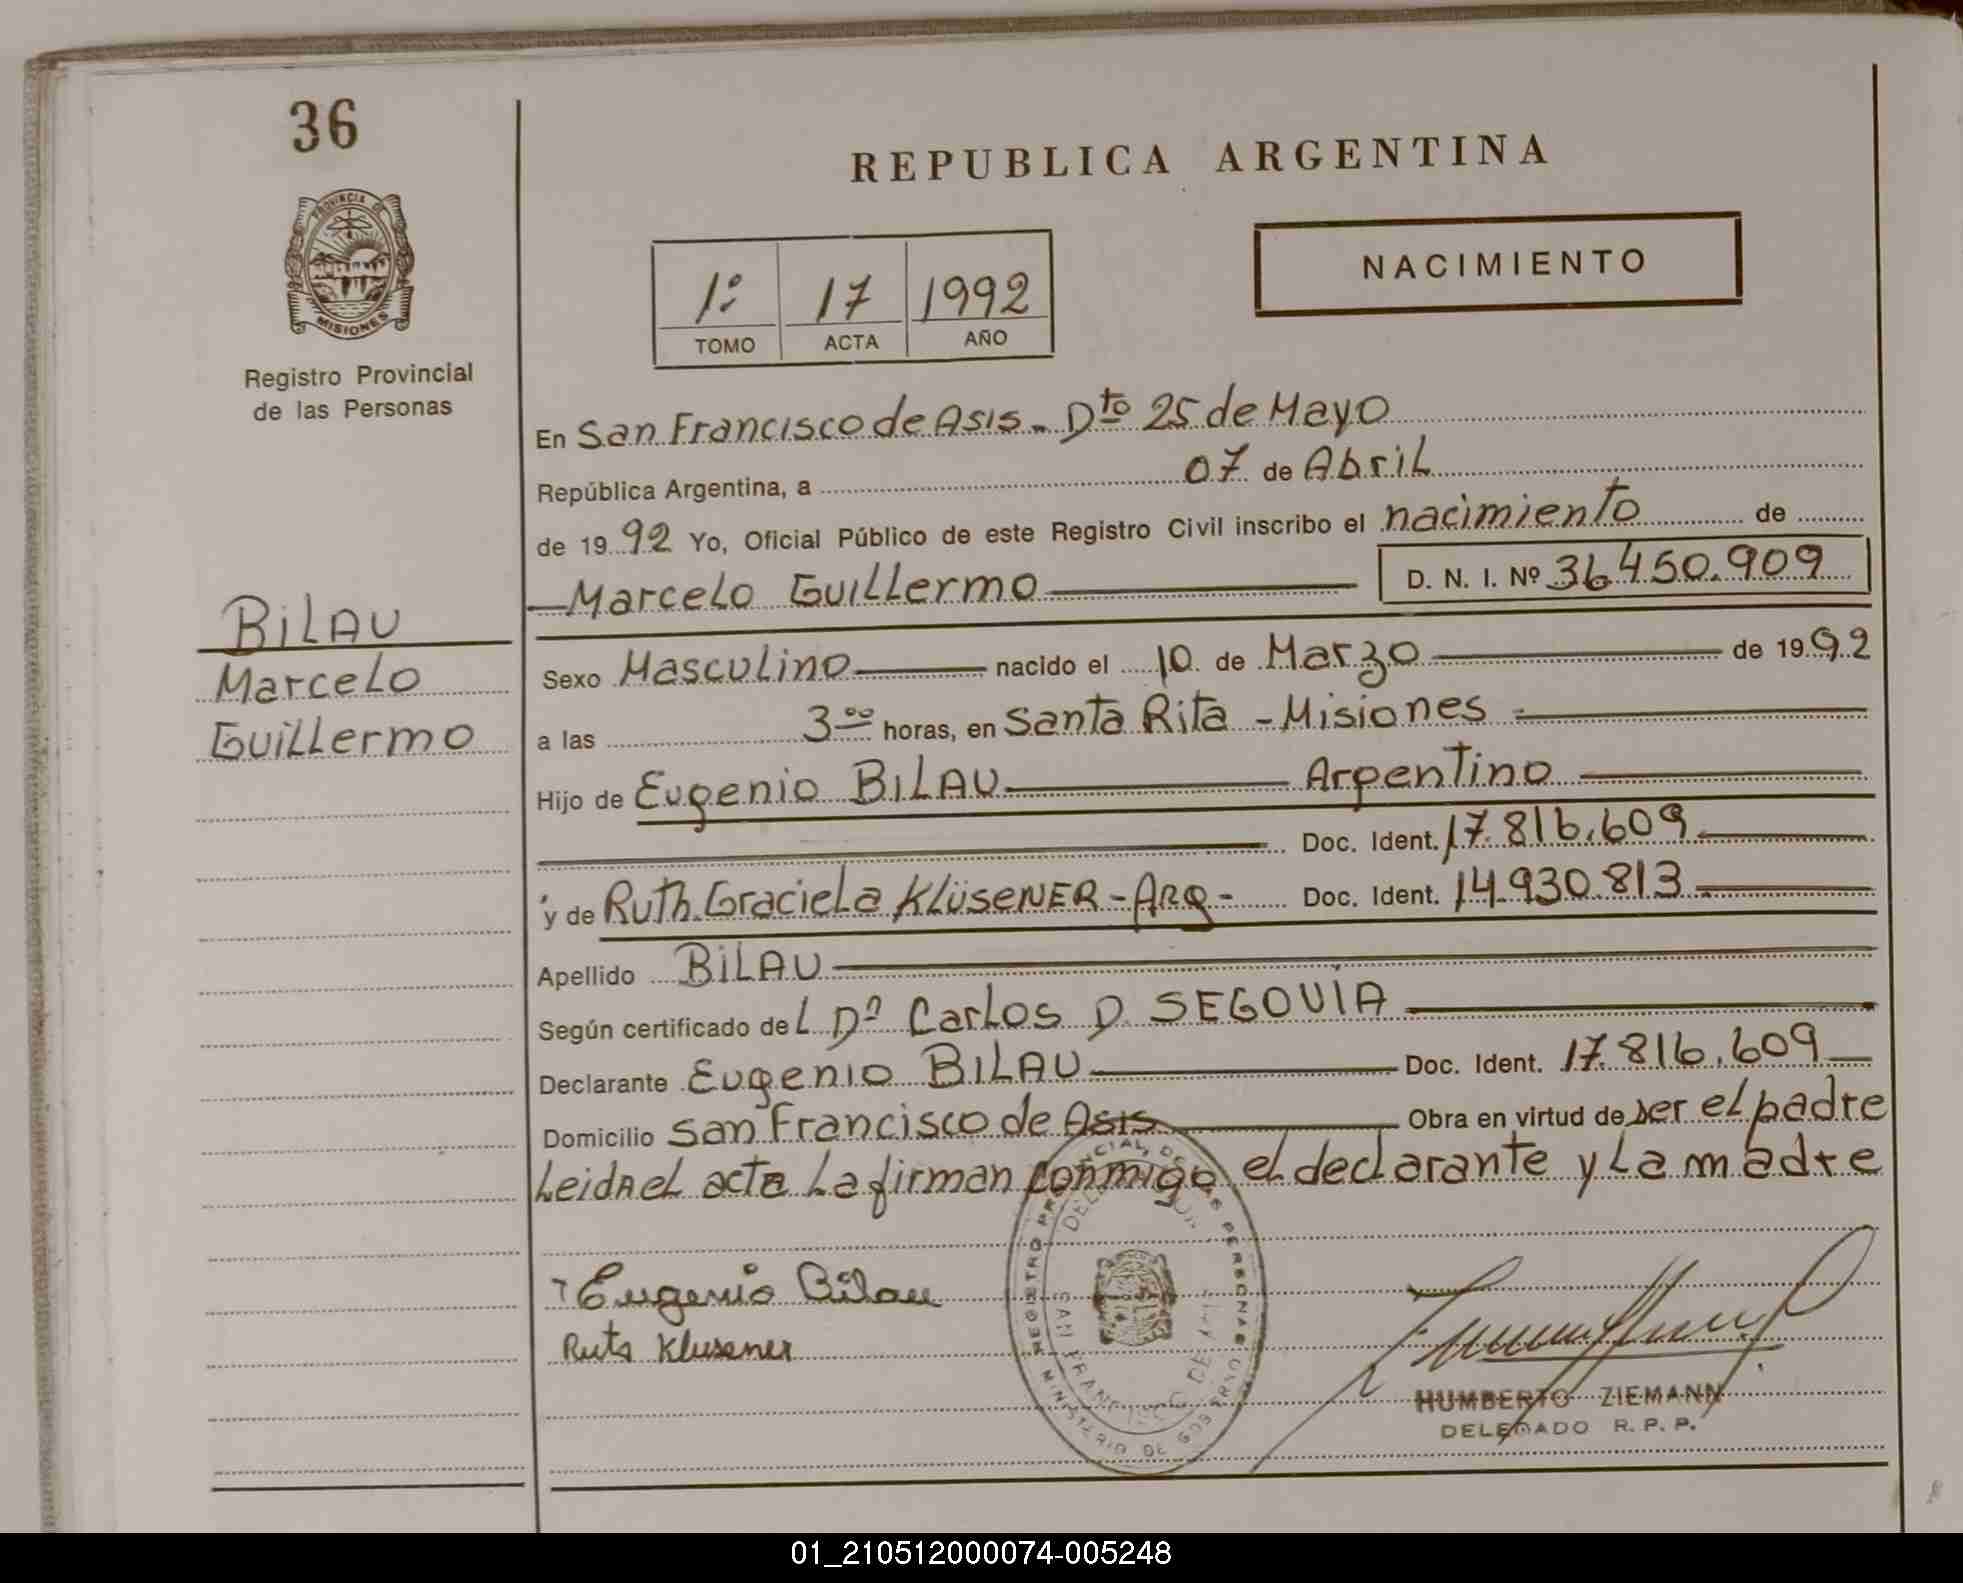 36
REPUBLICA ARGENTINA
PROVINCIA DE
MISIONES
NACIMIENTO
1º 17 1992
TOMO ACTA AÑO
Registro Provincial
de las Personas
En San Francisco de Asis. Dto 25 de Mayo
República Argentina, a 07 de Abril
de 19 92 Yo, Oficial Público de este Registro Civil inscribo el nacimiento de
Marcelo Guillermo D. N. I. Nº 36.450.909
BiLAU
Marcelo
Guillermo
Sexo Masculino nacido el 10 de Marzo de 1992
a las 3 00 horas, en Santa Rita - Misiones
Hijo de Eugenio BiLAU Argentino
Doc. Ident. 17.816.609
y de Ruth Graciela KLüSENER - ARG - Doc. Ident. 14.930.813
Apellido BiLAU
Según certificado del Dº Carlos D. SEGOVIA
Declarante Eugenio BILAU Doc. Ident. 17.816.609
Domicilio San Francisco de Asis Obra en virtud de ser el padre
Leida el acta La firman conmigo el declarante y La madre
Eugenio Bilau
Ruth Klusener
REGISTRO PROVINCIAL DE LAS PERSONAS
MINISTERIO DE GOBIERNO
SAN FRANCISCO DE ASIS
HUMBERTO ZIEMANN
DELEGADO R. P. P.
01_210512000074-005248